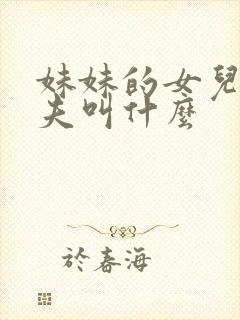 妹妹的女兒
夫叫什麼
於春海